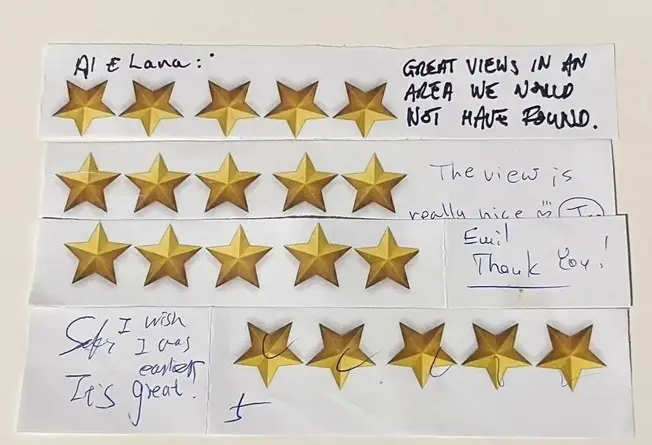 Al & Lana:
GREAT VIEWS IN AN
AREA WE WOULD
NOT HAVE FOUND.
The view is
really nice
Emil
Thank You!
I wish
I was
It's great!
5